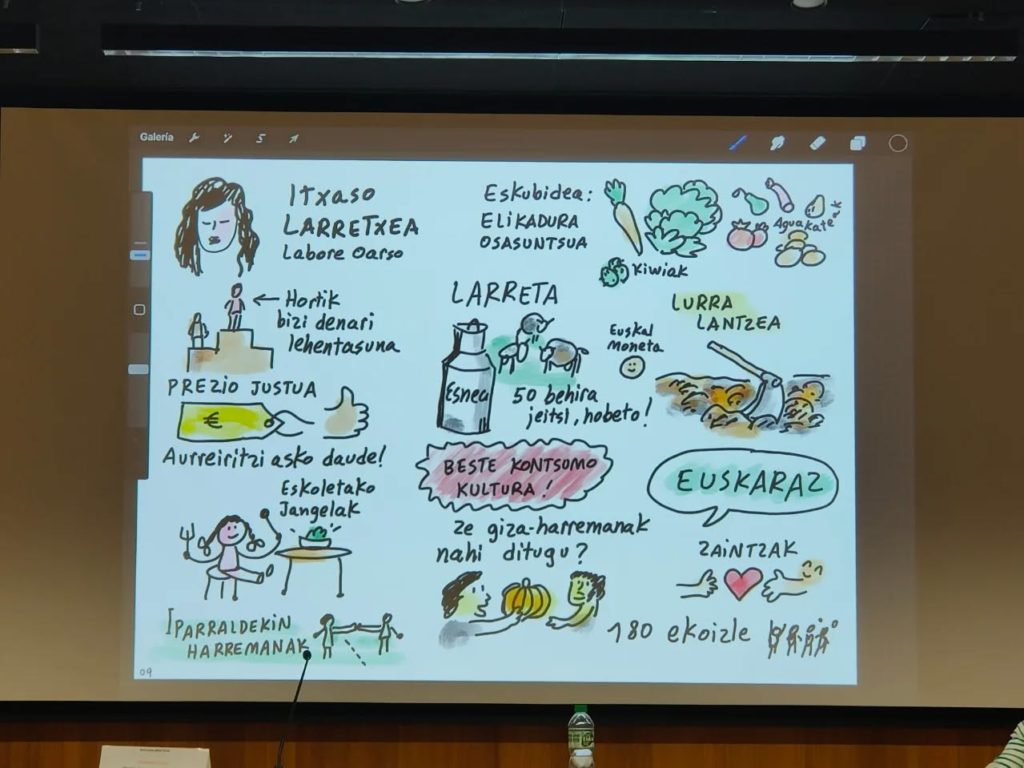 Galería
Itxaso
LARRETXEA
Labore Oarso
Eskubidea:
ELIKADURA
OSASUNTSUA
Aguakateak
Kiwiak
← Hortik
bizi denari
lehentasuna
LARRETA
Esnea
50 behira
jeitsi, hobeto!
Euskal
Moneta
LURRA
LANTZEA
PREZIO JUSTUA
€
Aurreiritzi asko daude!
BESTE KONTSUMO
KULTURA!
EUSKARAZ
Eskoletako
Jangelak
ze giza-harremanak
nahi ditugu?
ZAINTZAK
IPARRALDEKIN
HARREMANAK
180 ekoizle
09